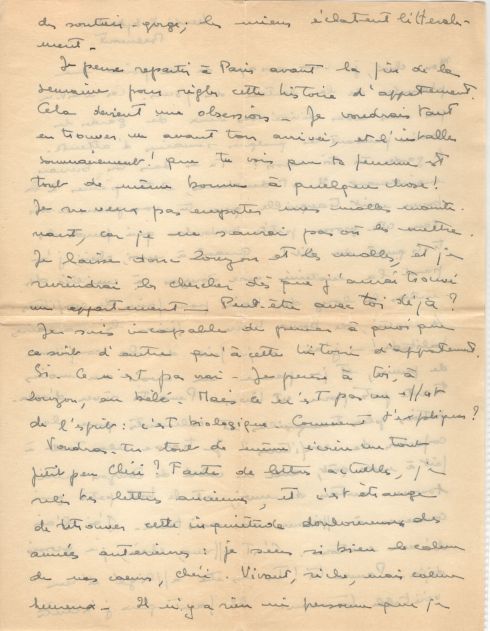 des soutien-gorge; les miens éclatent littérale-
ment.
Je pense repartir à Paris avant la fin de la
semaine pour régler cette histoire d'appartement.
Cela devient une obsession - Je voudrais tant
en trouver un avant ton arrivée, et l'installer
sommairement! que tu vois que ta femme est
tout de même bonne à quelque chose!
Je ne veux pas emporter mes malles mainte-
nant, car je ne saurai pas où les mettre.
Je laisse donc et les malles, et je
reviendrai les chercher dès que j'aurai trouvé
un appartement - Peut-être avec toi déjà?
Je suis incapable de penser à quoi que
ce soit d'autre qu'à cette histoire d'appartement.
Si. Ce n'est pas vrai - Je pense à toi, à
, au bébé. Mais ce n'est pas un effort
de l'esprit: c'est biologique. Comment t'expliquer?
Voudras-tu tout de même écrire un tout
petit peu Chéri? Faute de lettres actuelles, je
relis tes lettres anciennes, et c'est étrange
de retrouver cette inquiétude douloureuse des
années antérieures: je sens si bien le calme
de nos coeurs, chéri. Vivant, riche mais calme
heureux - Il n'y a rien ni personne que je